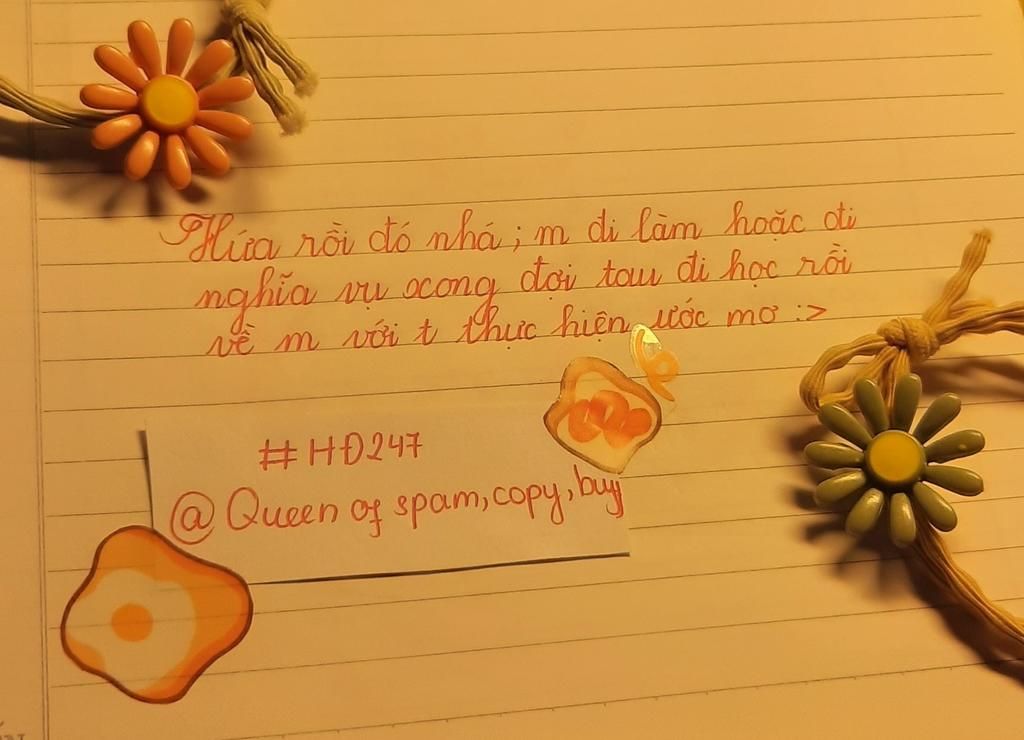 Hứa rồi đó nhá; m đi làm hoặc đi
nghĩa vụ xong đợi tau đi học rồi
về m với t thực hiện ước mơ :>
#HĐ247
@Queen of spam, copy, buy